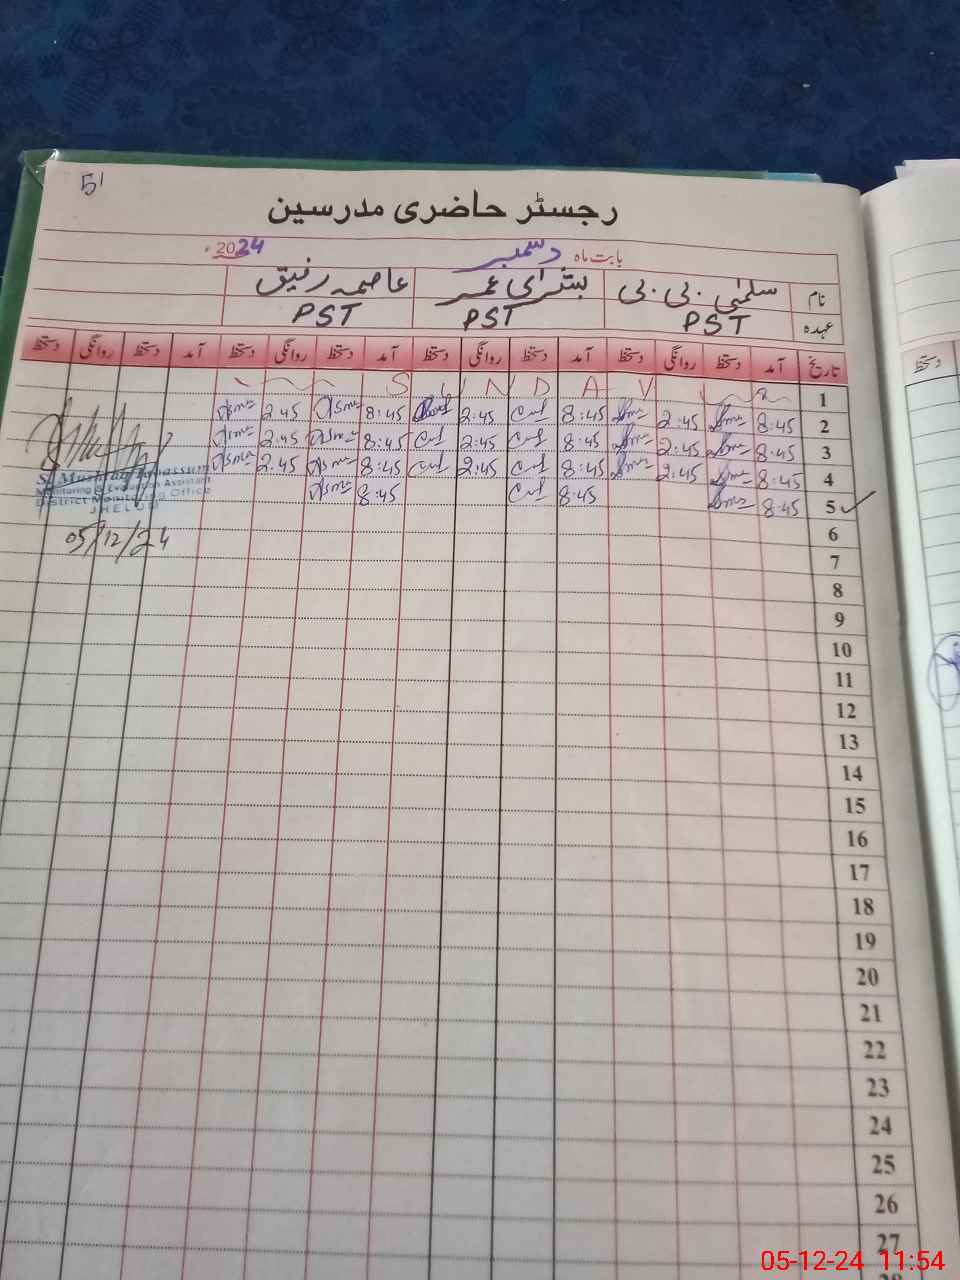 51
رجسٹر حاضری مدرسین
بابت ماہ دسمبر 2024ء
نام سلمٰی بی بی بشرٰی عمر عاصمہ رفیق
عہدہ PST PST PST
تاریخ آمد دستخط روانگی دستخط آمد دستخط روانگی دستخط آمد دستخط روانگی دستخط آمد دستخط روانگی دستخط
1 S U N D A Y
2 8:45 2:45 8:45 2:45 8:45 2:45
3 8:45 2:45 8:45 2:45 8:45 2:45
4 8:45 2:45 8:45 2:45 8:45 2:45
5 8:45 8:45 8:45
Monitoring & Evaluation Assistant
District Monitoring Office
JHELUM
05/12/24
6
7
8
9
10
11
12
13
14
15
16
17
18
19
20
21
22
23
24
25
26
27
28
دستخط
05-12-24 11:54